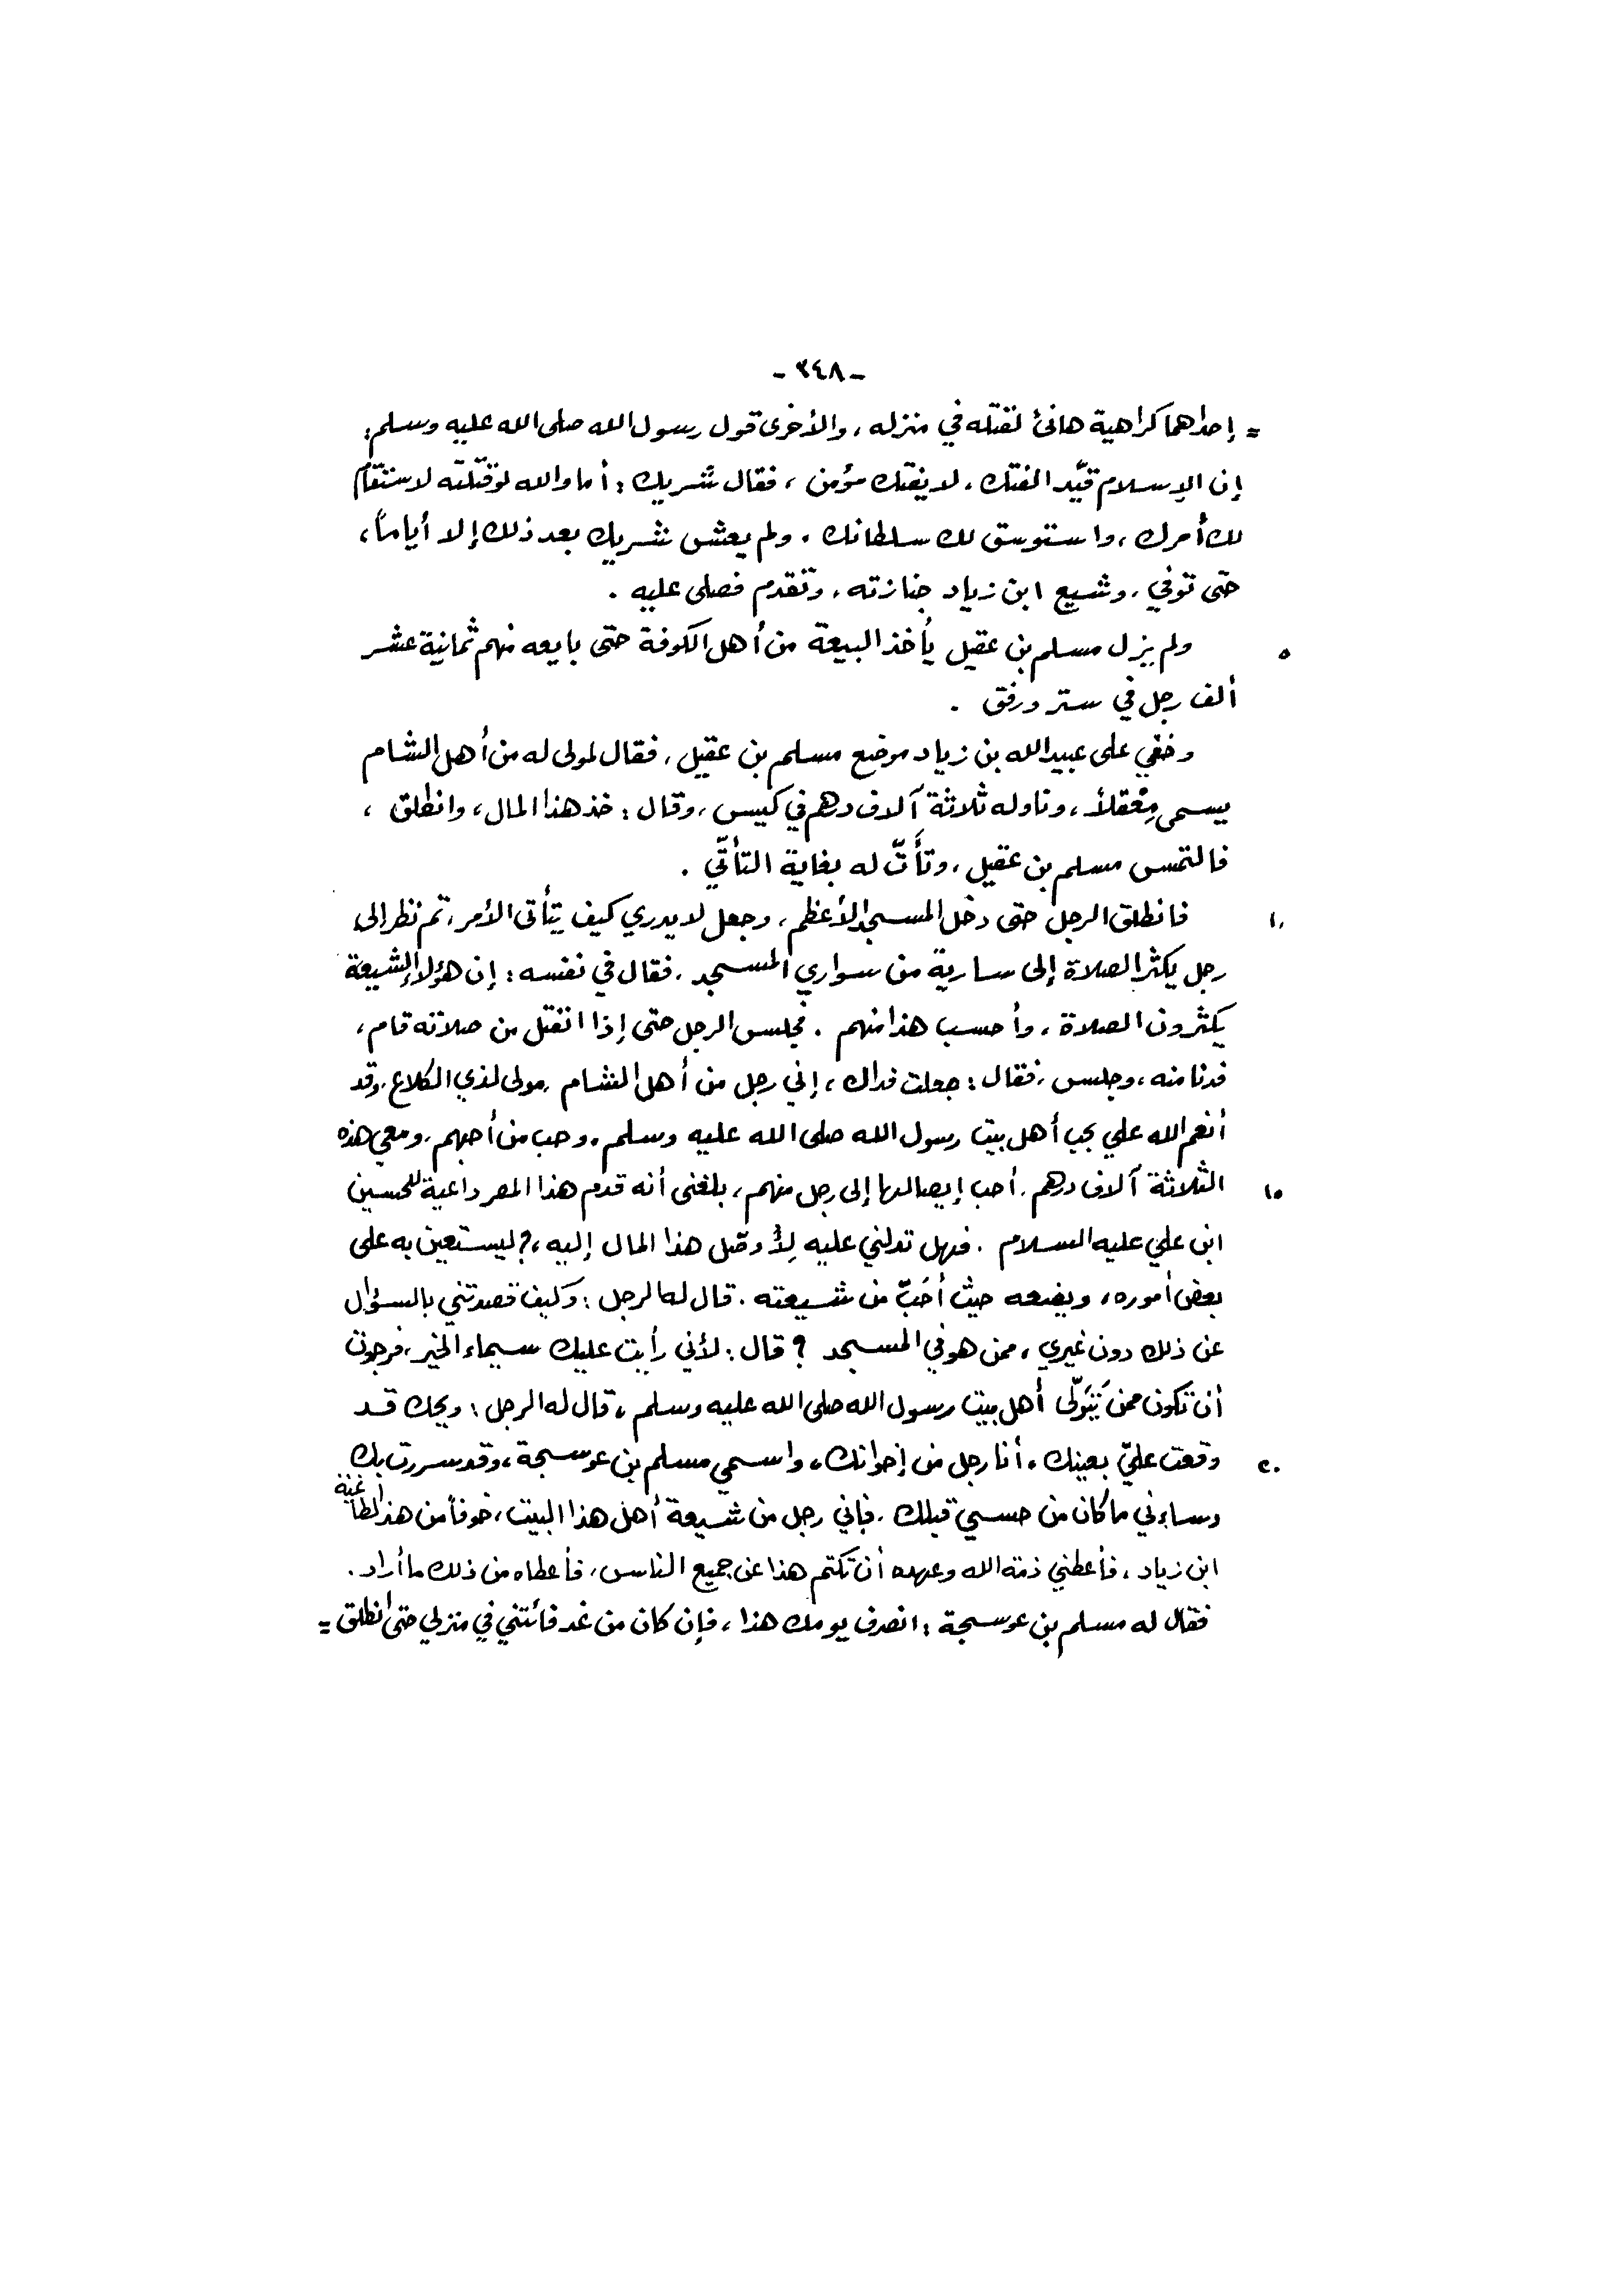 - ٣٤٨ -
= إحداهما كراهية هانئ لقتله في منزله، والأخرى قول رسول الله صلى الله عليه وسلم:
إن الإسلام قيَّد الفتك، لا يفتك مؤمن، فقال شريك: أما والله لو قتلته لاستقام
لك أمرك، واستوسق لك سلطانك. ولم يعش شريك بعد ذلك إلا أياماً،
حتى توفي، وشيع ابن زياد جنازته، وتقدم فصلى عليه.
٥ ولم يزل مسلم بن عقيل يأخذ البيعة من أهل الكوفة حتى بايعه منهم ثمانية عشر
ألف رجل في ستر ورفق.
وخفي على عبيد الله بن زياد موضع مسلم بن عقيل، فقال لمولى له من أهل الشام
يسمى مِعْقلاً، وناوله ثلاثة آلاف درهم في كيس، وقال: خذ هذا المال، وانطلق،
فالتمس مسلم بن عقيل، وتأَتَّ له بغاية التأتّي.
١٠ فانطلق الرجل حتى دخل المسجد الأعظم، وجعل لا يدري كيف يتأتى الأمر، ثم نظر إلى
رجل يكثر الصلاة إلى سارية من سواري المسجد، فقال في نفسه: إن هؤلاء الشيعة
يكثرون الصلاة، وأحسب هذا منهم. فجلس الرجل حتى إذا انفتل من صلاته قام،
فدنا منه، وجلس، فقال: جعلت فداك، إني رجل من أهل الشام، مولى لذي الكلاع، وقد
أنعم الله علي بحب أهل بيت رسول الله صلى الله عليه وسلم، وحب من أحبهم، ومعي هذه
١٥ الثلاثة آلاف درهم، أحب إيصالها إلى رجل منهم، بلغني أنه قدم هذا المصر داعية للحسين
ابن علي عليه السلام. فهل تدلني عليه لِأُوصّل هذا المال إليه،؟ ليستعين به على
بعض أموره، ويضعه حيث أحَبّ من شيعته. قال له الرجل: وكيف قصدتني بالسؤال
عن ذلك دون غيري، ممن هو في المسجد ؟ قال: لأني رأيت عليك سيماء الخير، فرجوت
أن تكون ممن يَتَولّى أهل بيت رسول الله صلى الله عليه وسلم، قال له الرجل: ويحك قد
٢٠ وقعت عليّ بعينك، أنا رجل من إخوانك، واسمي مسلم بن عوسجة، وقد سررت بك
وساءني ما كان من حسي قبلك. فإني رجل من شيعة أهل هذا البيت، خوفاً من هذا الطاغية
ابن زياد، فأعطني ذمة الله وعهده أن تكتم هذا عن جميع الناس، فأعطاه من ذلك ما أراد.
فقال له مسلم بن عوسجة: انصرف يومك هذا، فإن كان من غد فائتني في منزلي حتى أنطلق =